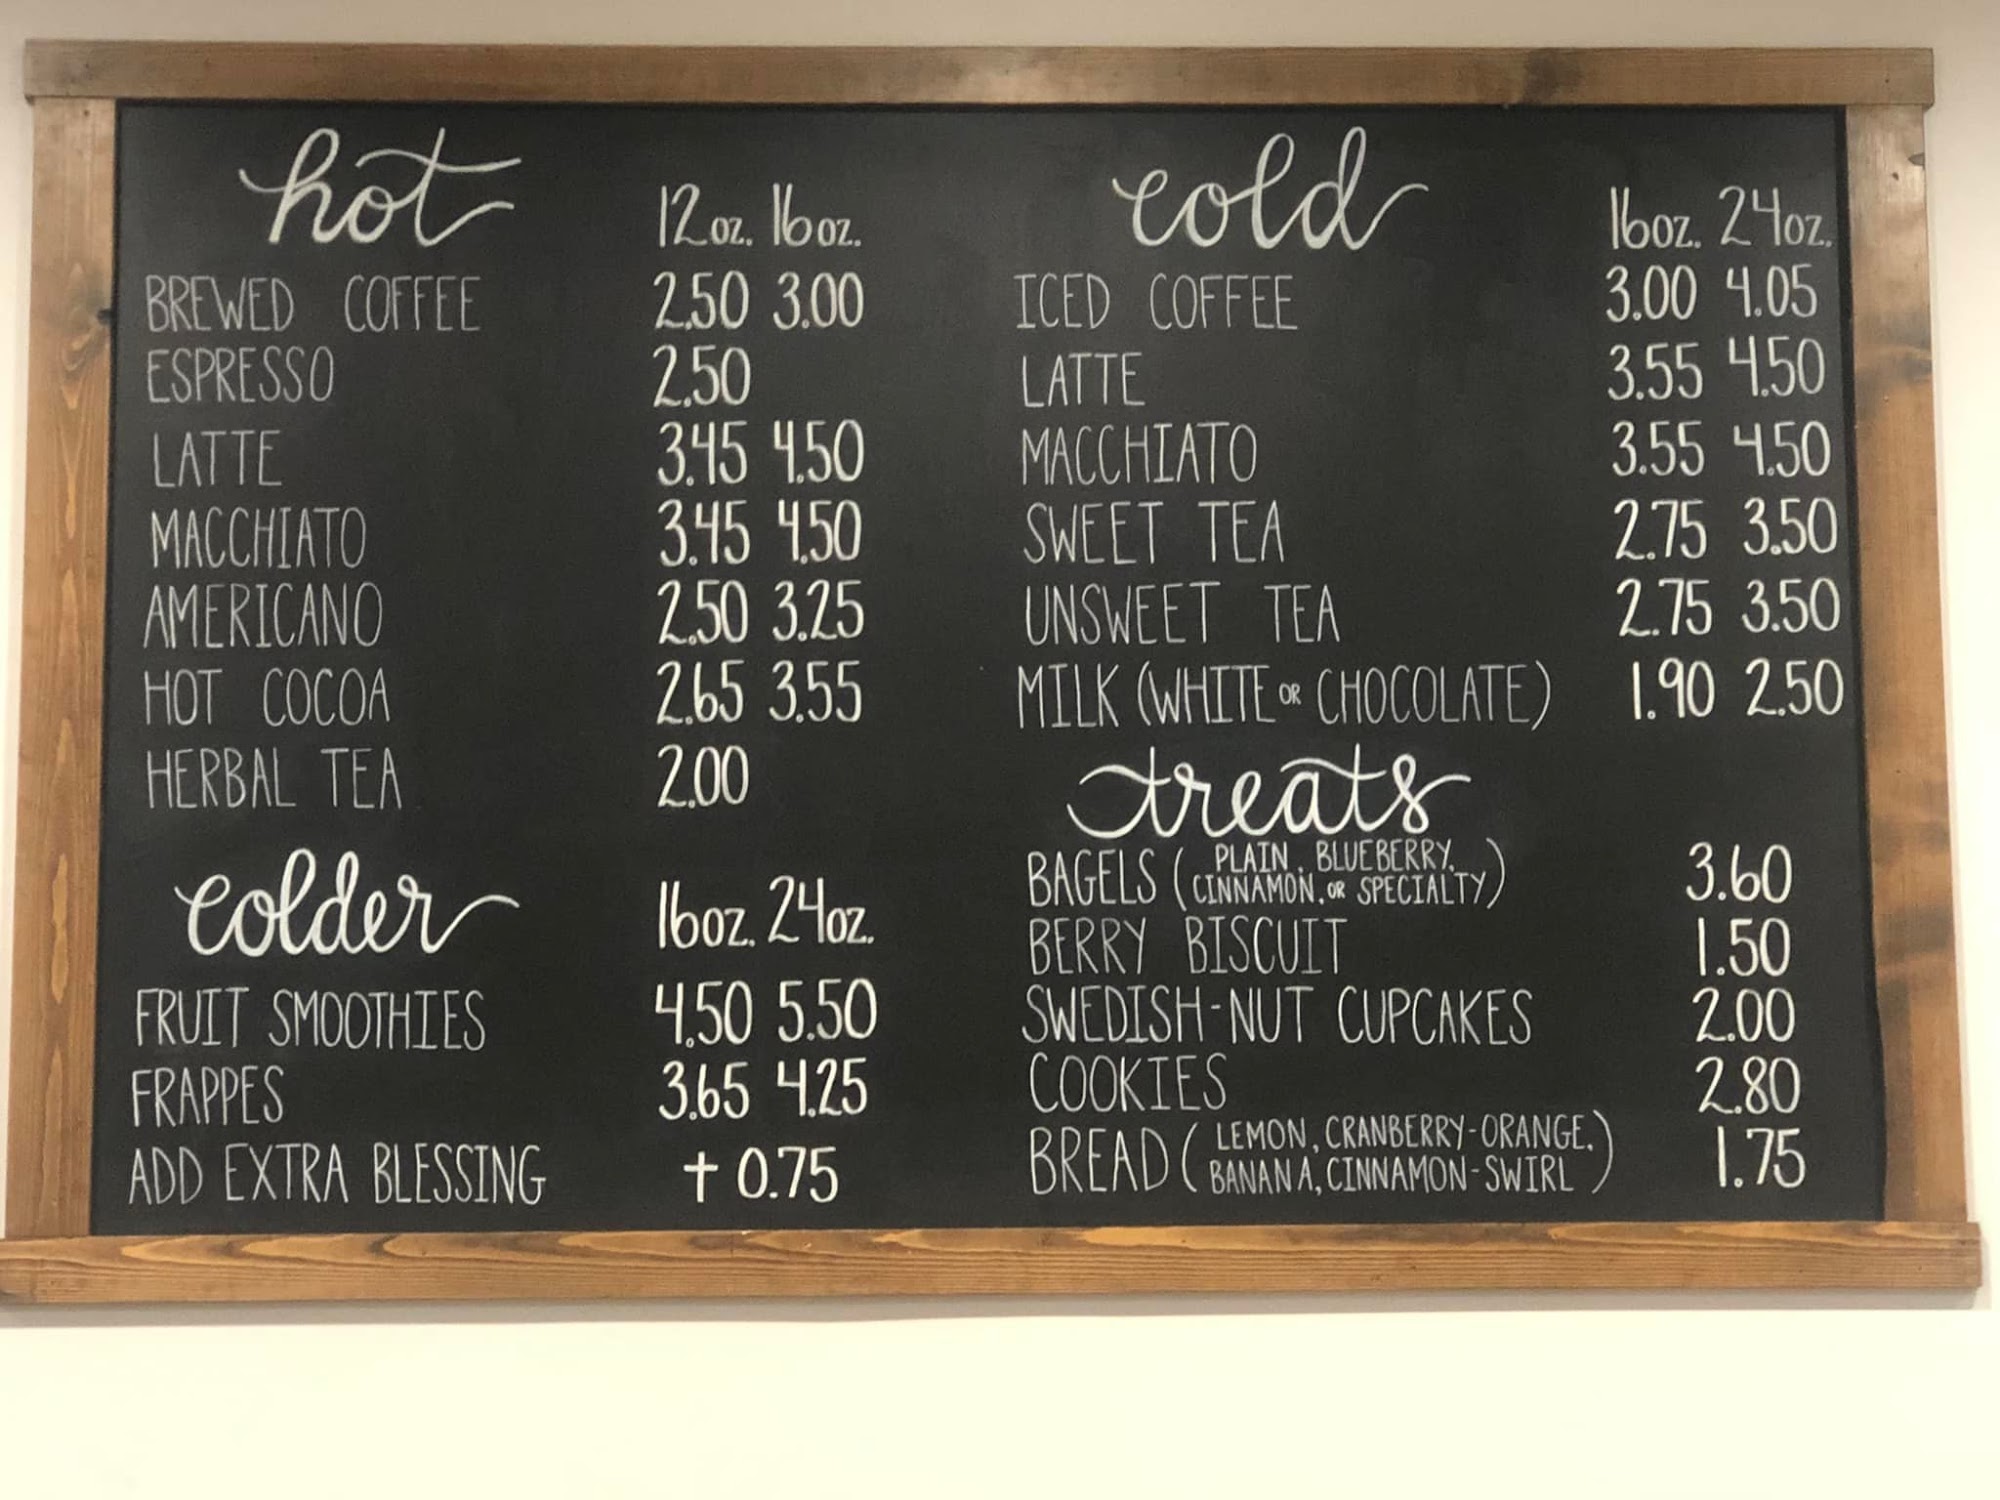 hot 12 oz. 16 oz.
BREWED COFFEE 2.50 3.00
ESPRESSO 2.50
LATTE 3.45 4.50
MACCHIATO 3.45 4.50
AMERICANO 2.50 3.25
HOT COCOA 2.65 3.55
HERBAL TEA 2.00
colder 16oz. 24oz.
FRUIT SMOOTHIES 4.50 5.50
FRAPPES 3.65 4.25
ADD EXTRA BLESSING + 0.75
cold 16oz. 24oz.
ICED COFFEE 3.00 4.05
LATTE 3.55 4.50
MACCHIATO 3.55 4.50
SWEET TEA 2.75 3.50
UNSWEET TEA 2.75 3.50
MILK (WHITE OR CHOCOLATE) 1.90 2.50
treats
BAGELS (PLAIN, BLUEBERRY, 3.60
CINNAMON, OR SPECIALTY)
BERRY BISCUIT 1.50
SWEDISH-NUT CUPCAKES 2.00
COOKIES 2.80
BREAD (LEMON, CRANBERRY-ORANGE, 1.75
BANANA, CINNAMON-SWIRL)